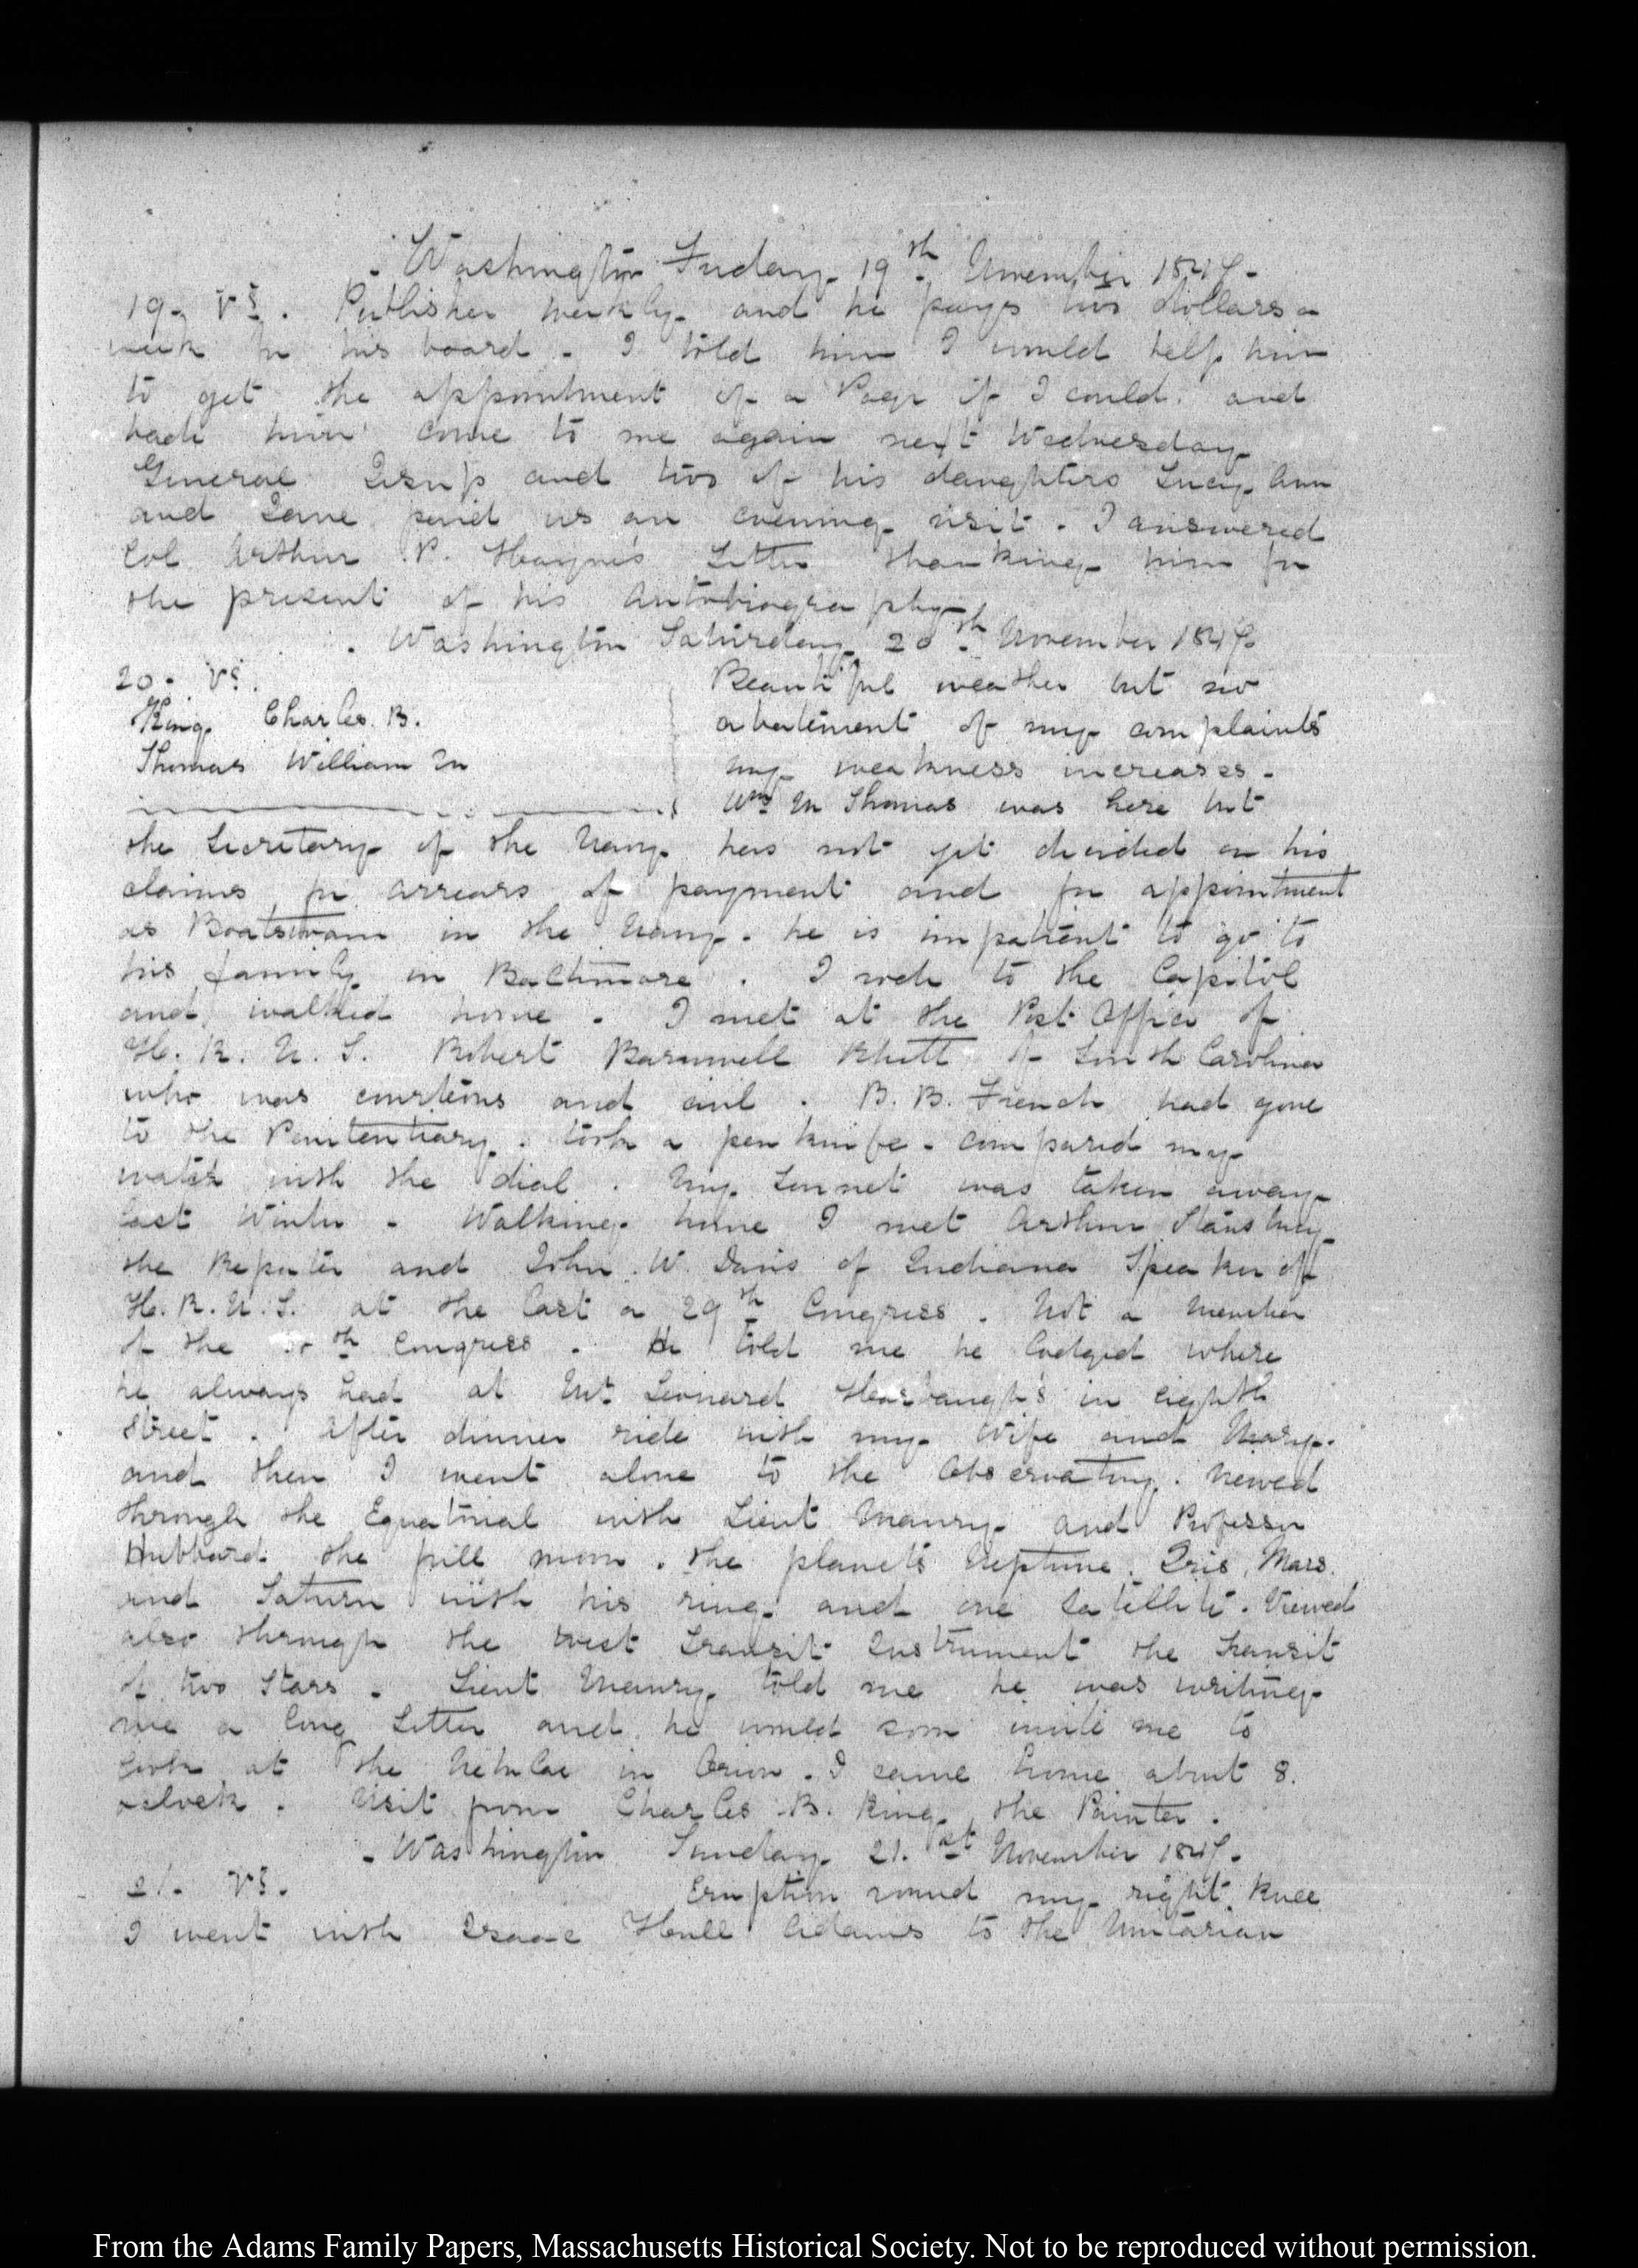 Washington Friday 19th November 1847.
19. VI. Publisher weekly and he pays two dollars a
week for his board. I told him I would help him
to get the appointment of a Page if I could. and
bade him come to me again next Wednesday
General Jesup and two of his daughters Lucy Ann
and Jane paid us an evening visit. I answered
Col Arthur P. Hayne's Letter thanking him for
the present of his Autobiography
Washington Saturday 20th November 1847.
20. VI.
King Charles. B.
Thomas William M
Beautiful weather but no
abatement of my complaints
my weakness increases.
Wm M Thomas was here but
the Secretary of the Navy has not yet decided on his
claims for arrears of payment and for appointment
as Boatswain in the Navy. he is impatient to go to
his family in Baltimore. I rode to the Capitol
and walked home. I met at the Post Office of
H. R. U. S. Robert Barnwell Rhett of South Carolina
who was courteous and civil. B. B. French had gone
to the Penitentiary. took a penknife. compared my
watch with the dial. My Sonnet was taken away
last Winter. Walking home I met Arthur Stansbury
the Reporter and John W. Davis of Indiana Speaker of
H. R. U. S. at the last or 29th Congress. Not a member
of the 30th Congress. He told me he lodged where
he always had at Mr. Leonard Harbaugh's in eighth
street. After dinner ride with my Wife and Mary.
and then I went alone to the Observatory. viewed
through the Equatorial with Lieut Maury and Professor
Hubbard the full moon. the planets Neptune. Iris, Mars.
and Saturn with his ring and one Satellite. Viewed
also through the West Transit Instrument the transit
of two Stars. Lieut Maury told me he was writing
me a long Letter and he would soon invite me to
look at the Nebulae in Orion. I came home about 8.
oclock. Visit from Charles B. King the Painter.
Washington Sunday 21. st November 1847.
21. VI.
Eruption round my right knee
I went with Isaac Hull Adams to the Unitarian
From the Adams Family Papers, Massachusetts Historical Society. Not to be reproduced without permission.